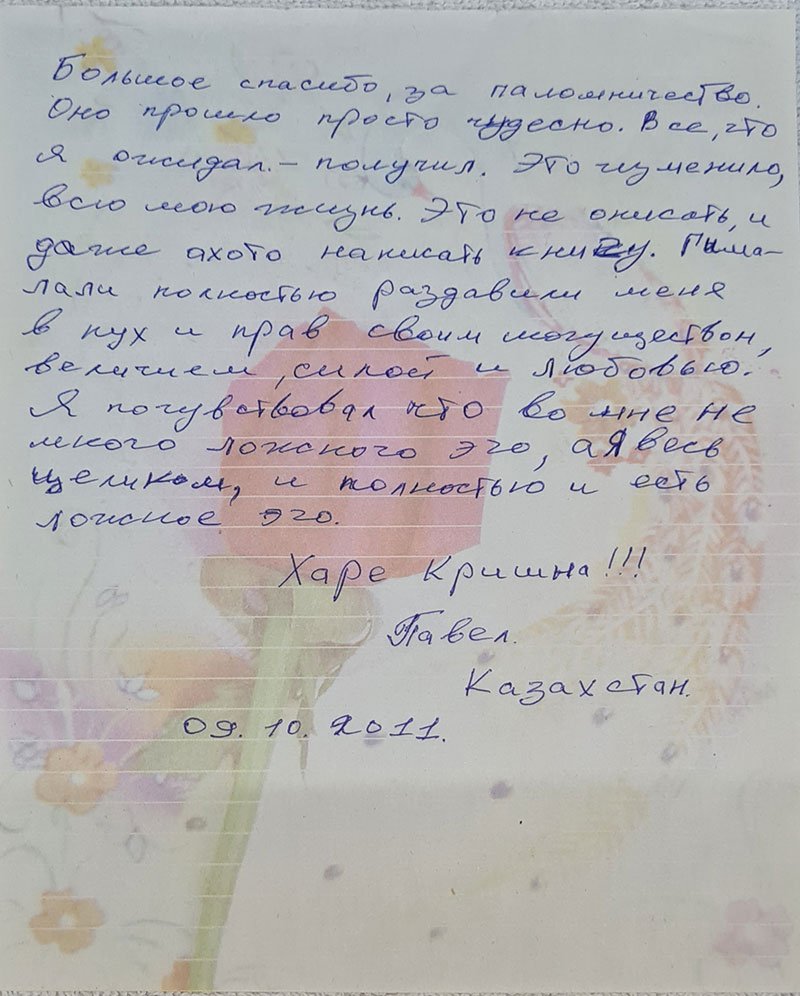 Большое спасибо, за паломничество.
Оно прошло просто чудесно. Все, что
я ожидал. – получил. Это изменило,
всю мою жизнь. Это не описать, и
даже ахото написать книгу. Гима-
лали полностью раздавили меня
в пух и прав своим могуществом,
величием, силой и любовью.
Я почувствовал что во мне не
много ложного эго, а я весь
целиком, и полностью и есть
ложное эго.
Харе Кришна!!!
Павел.
Казахстан.
09.10.2011.